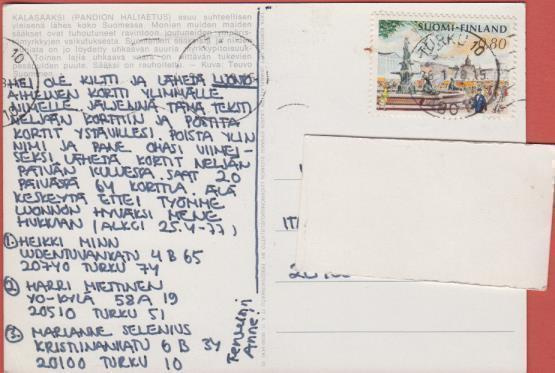 KALASÄÄKSI (PANDION HALIAETUS) asuu suhteellisen
yleisenä lähes koko Suomessa. Monien muiden maiden
sääkset ovat tuhoutuneet ravintoon joutuneiden
vaikutuksesta
on rauhoitettu. – Kuva: Teuvo
Suominen
HEI OLE KILTTI JA LÄHETÄ LUONTO-
AIHEINEN KORTTI YLIMMÄLLE
NIMELLE. JÄLJENNÄ TÄMÄ TEKSTI
NELJÄÄN KORTTIIN JA POSTITA
KORTIT YSTÄVILLESI. POISTA YLIN
NIMI JA PANE OMASI VIIMEI-
SEKSI. LÄHETÄ KORTIT NELJÄN
PÄIVÄN KULUESSA. SAAT 20
PÄIVÄSTÄ 64 KORTTIA. ÄLÄ
KESKEYTÄ ETTEI TYÖMME
LUONNON HYVÄKSI MENE
HUKKAAN (ALKOI 25.4-77)
1. HEIKKI MINN
UUDENTUVANKATU 4 B 65
20740 TURKU 74
2. HARRI MIETTINEN
YO-KYLÄ 58A 19
20510 TURKU 51
3. MARIANNE SELENIUS
KRISTIINANKATU 6 B 34
20100 TURKU 10
Terveisin
Anne!
SUOMI-FINLAND
0,80
TURKU
10